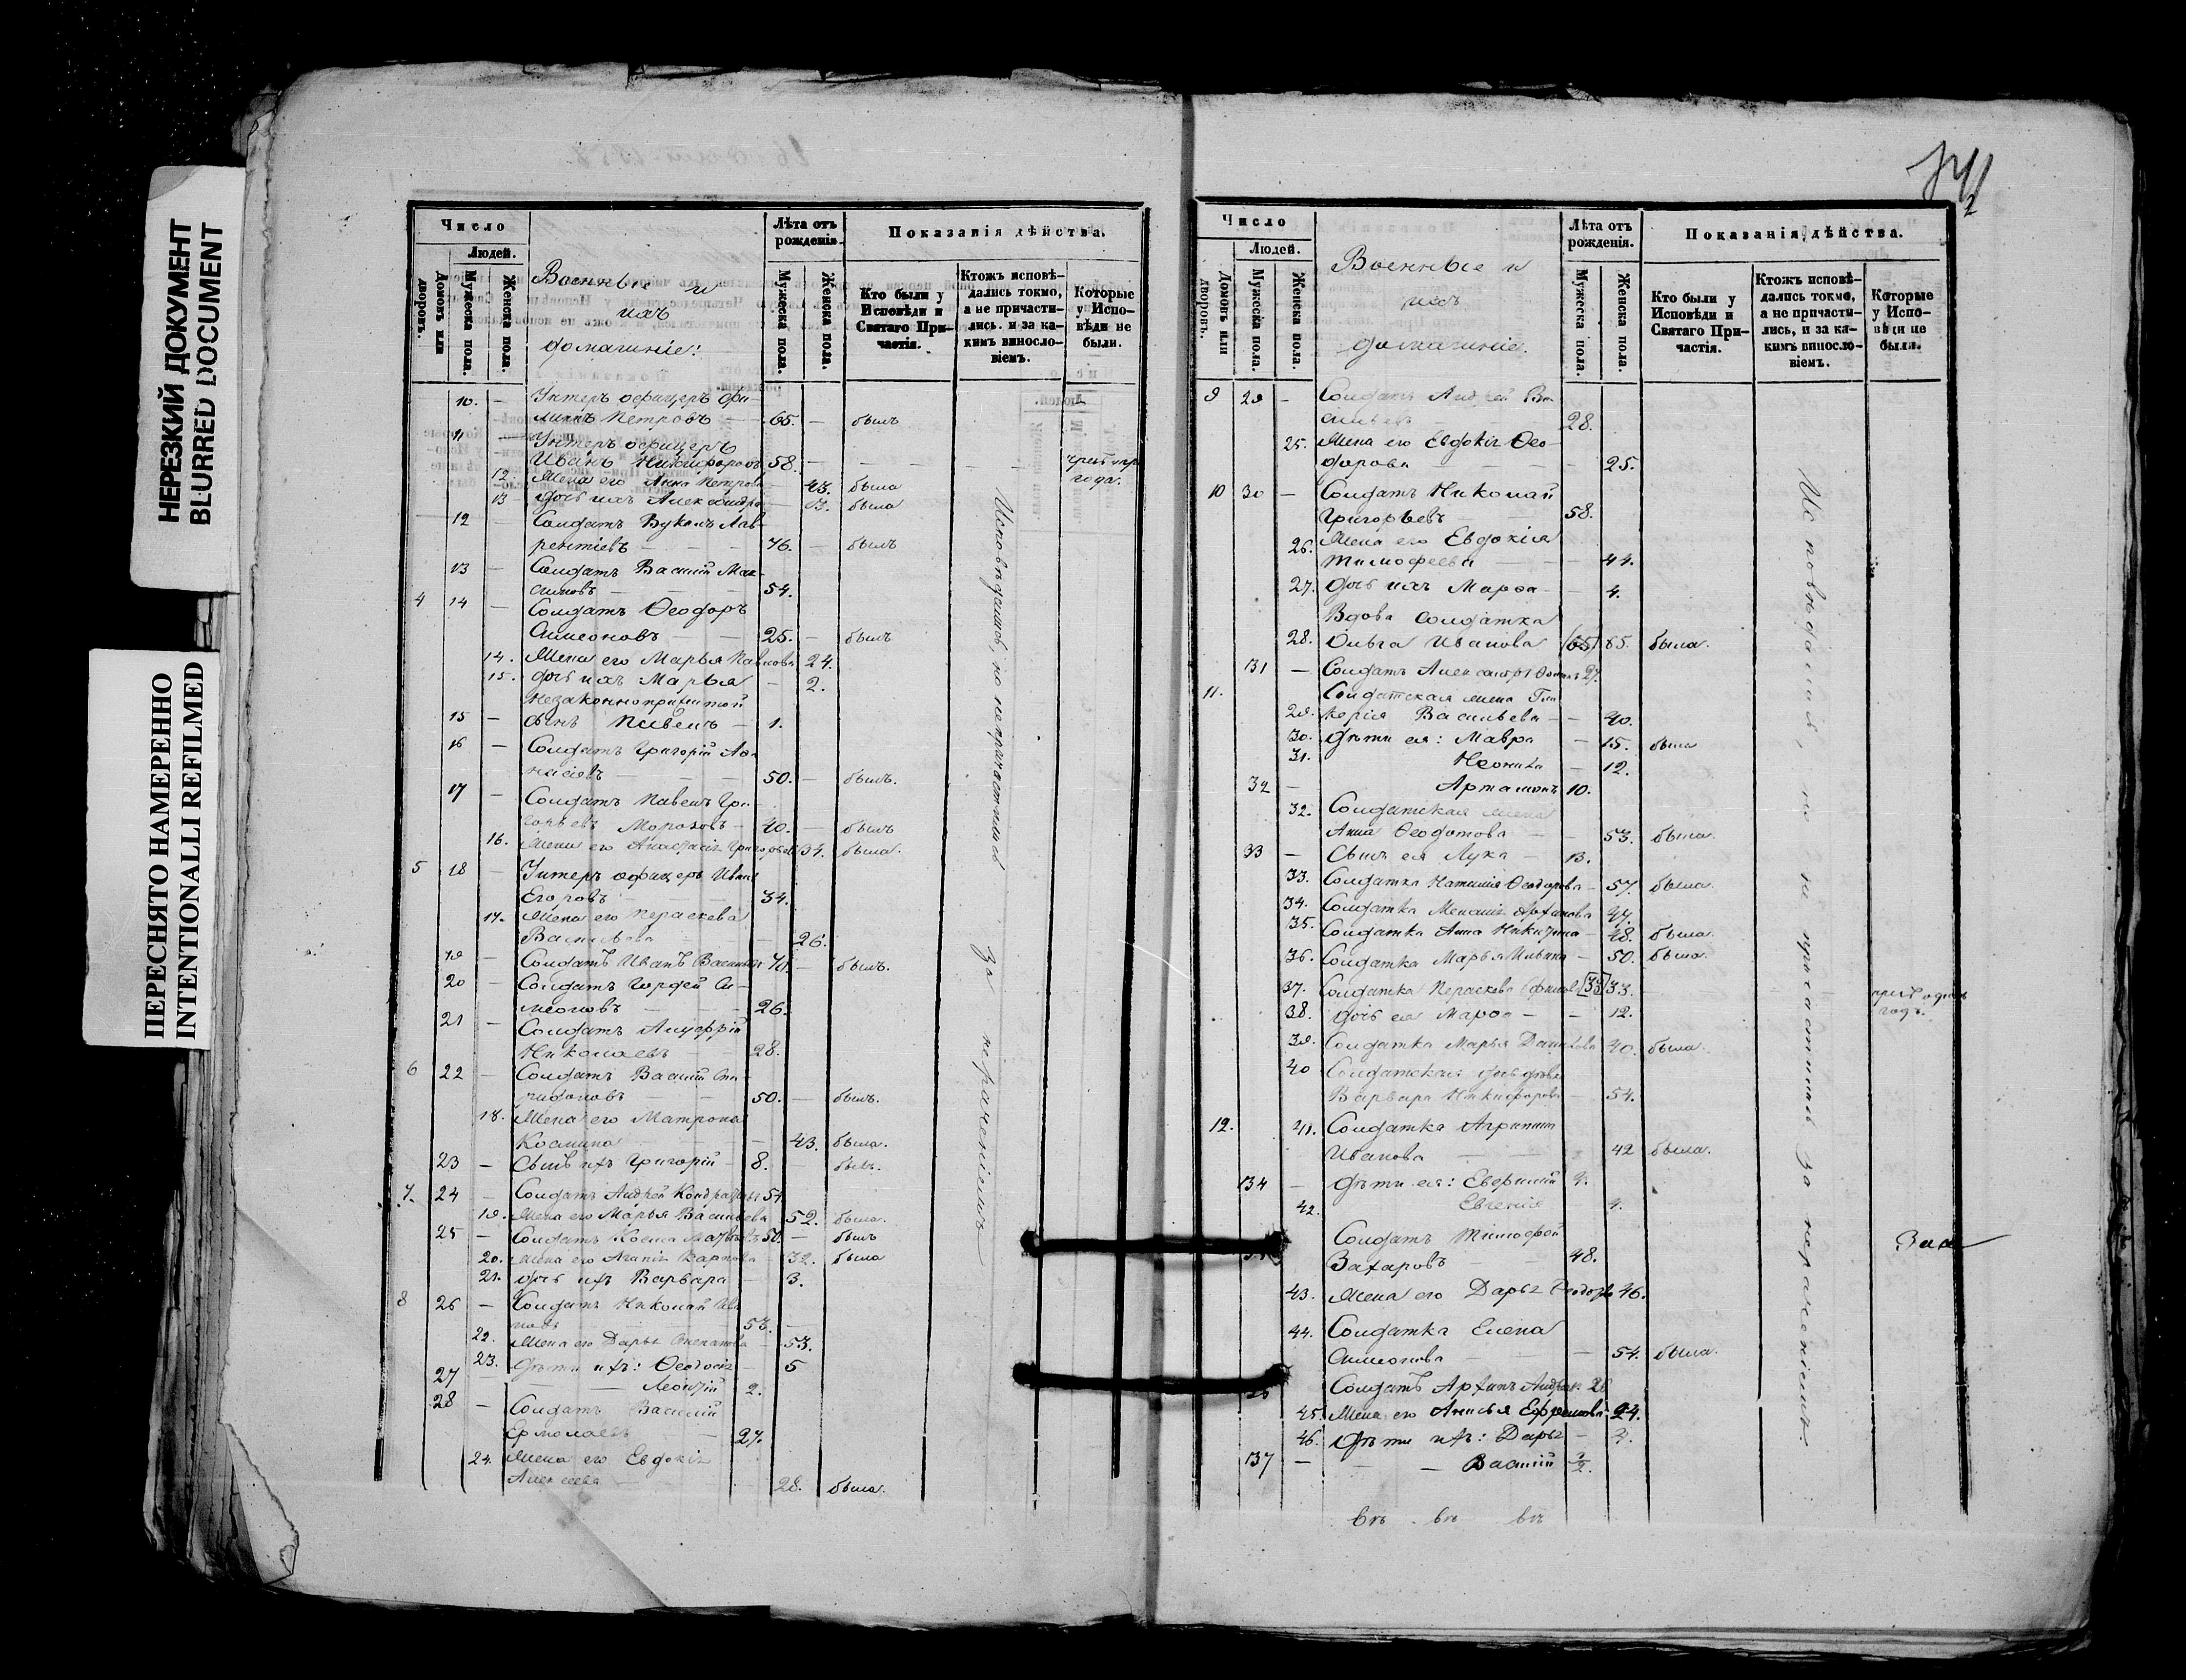 НЕРЕЗКИЙ ДОКУМЕНТ
BLURRED DOCUMENT
ПЕРЕСНЯТО НАМЕРЕННО
INTENTIONALLI REFILMED
Число
Людей.
Домовъ или дворовъ.
Мужеска пола.
Женска пола.
Военные и
ихъ
домашніе:
Лѣта отъ рожденія.
Мужеска пола.
Женска пола.
Показанія дѣйства.
Кто были у Исповѣди и Святаго Причастія.
Ктожъ исповѣдались токмо, а не причастились, и за какимъ винословіемъ.
Которые у Исповѣди не были.
10. — Унтеръ офицеръ Фи-
липъ Петровъ — 65. — былъ
11 — Унтеръ офицеръ
Иванъ Никифоровъ 58. —
года.
12. Жена его Анна Петрова 43. была
13 — дочь ихъ Александра 13. была
12 — Солдатъ Вуколъ Лав-
рентіевъ — 76. — былъ
13 — Солдатъ Василій Мак-
симовъ — 54.
4 14 — Солдатъ Ѳеодоръ
Симеоновъ — 25. — былъ
14. Жена его Марья Павлова 24.
15. дочь ихъ Марья — 2.
Незаконноприжитой
15 — сынъ Павелъ — 1.
16 — Солдатъ Григорій Аѳа-
насіевъ — 50. — былъ.
17 — Солдатъ Павелъ Гри-
горьевъ Морозовъ — 40. — былъ
16. Жена его Анастасія Григорьева 34. была.
5 18 — Унтеръ офицеръ Иванъ
Егоровъ — 34.
17. Жена его Параскева
Васильева — 26.
19 — Солдатъ Иванъ Васильевъ — былъ.
20 — Солдатъ Гордей Си-
меоновъ — 26.
21 — Солдатъ Ануфрій
Николаевъ — 28.
6 22 — Солдатъ Василій Спи-
ридоновъ — 50. — былъ.
18. Жена его Матрона
Космина — 43. была.
23 — Сынъ ихъ Григорій — 8. — былъ.
7. 24 — Солдатъ Андрей Кондратьевъ 54.
19. Жена его Марья Васильева 52. была.
25 — Солдатъ Косма 50. — былъ
20. Жена его Агапія Карпова 32. была
21. дочь ихъ Варвара — 3.
8 26 — Солдатъ Николай Ива-
новъ 53. —
22. Жена его Дарья Степанова — 53.
23. Дѣти ихъ: Ѳеодосія — 5
27 — Леонтій 2.
28 — Солдатъ Василій
Ермолаевъ — 27.
24. Жена его Евдокія
Алексеева 28. была.
Исповѣдались, но не причастились за нераченіемъ
Число
Людей.
Домовъ или дворовъ.
Мужеска пола.
Женска пола.
Военные и
ихъ
домашніе.
Лѣта отъ рожденія.
Мужеска пола.
Женска пола.
Показанія дѣйства.
Кто были у Исповѣди и Святаго Причастія.
Ктожъ исповѣдались токмо, а не причастились, и за какимъ винословіемъ.
Которые у Исповѣди не были.
9 29 — Солдатъ Андрей Ва-
сильевъ 28.
25. Жена его Евдокія Ѳео-
дорова — 25.
10 30 — Солдатъ Николай
Григорьевъ 58.
26. Жена его Евдокія
Тимофеева — 44.
27. дочь ихъ Марѳа — 4.
Вдова солдатка
28. Ольга Иванова (65) 65. была.
131 — Солдатъ Александръ 27.
11. Солдатская жена Гли-
29. керія Васильева — 40.
30. дѣти ея: Мавра — 15. была
31. Неонила — 12.
32 — Артамонъ 10.
32. Солдатская жена
Анна Ѳеодотова — 53. была.
33 — Сынъ ея Лука — 13.
33. Солдатка Наталія Ѳеодорова — 57. была.
34. Солдатка Меланія Архипова 47.
35. Солдатка Анна Никитина — 48. была.
36. Солдатка Марья Ильина — 50. была.
37. Солдатка Параскева 33 33.
годъ.
38. дочь ея Марѳа — 12.
39. Солдатка Марья Данилова 40. была.
40 Солдатская
Варвара Никифорова 54.
12. 41. Солдатка Агрипина
Иванова — 42 была.
134 — дѣти ея: Евфимій 9.
42. Евгенія 4.
Солдатъ Тимофей
Захаровъ 48.
43. Жена его Дарья Ѳеодоро 46.
44. Солдатка Елена
Симеонова — 54. была.
Солдатъ Архипъ
45. Жена его Анисья Ефремова 24.
46. Дѣти ихъ: Дарья —
137 — Василій
Исповѣдались, но не причастились за нераченіемъ.